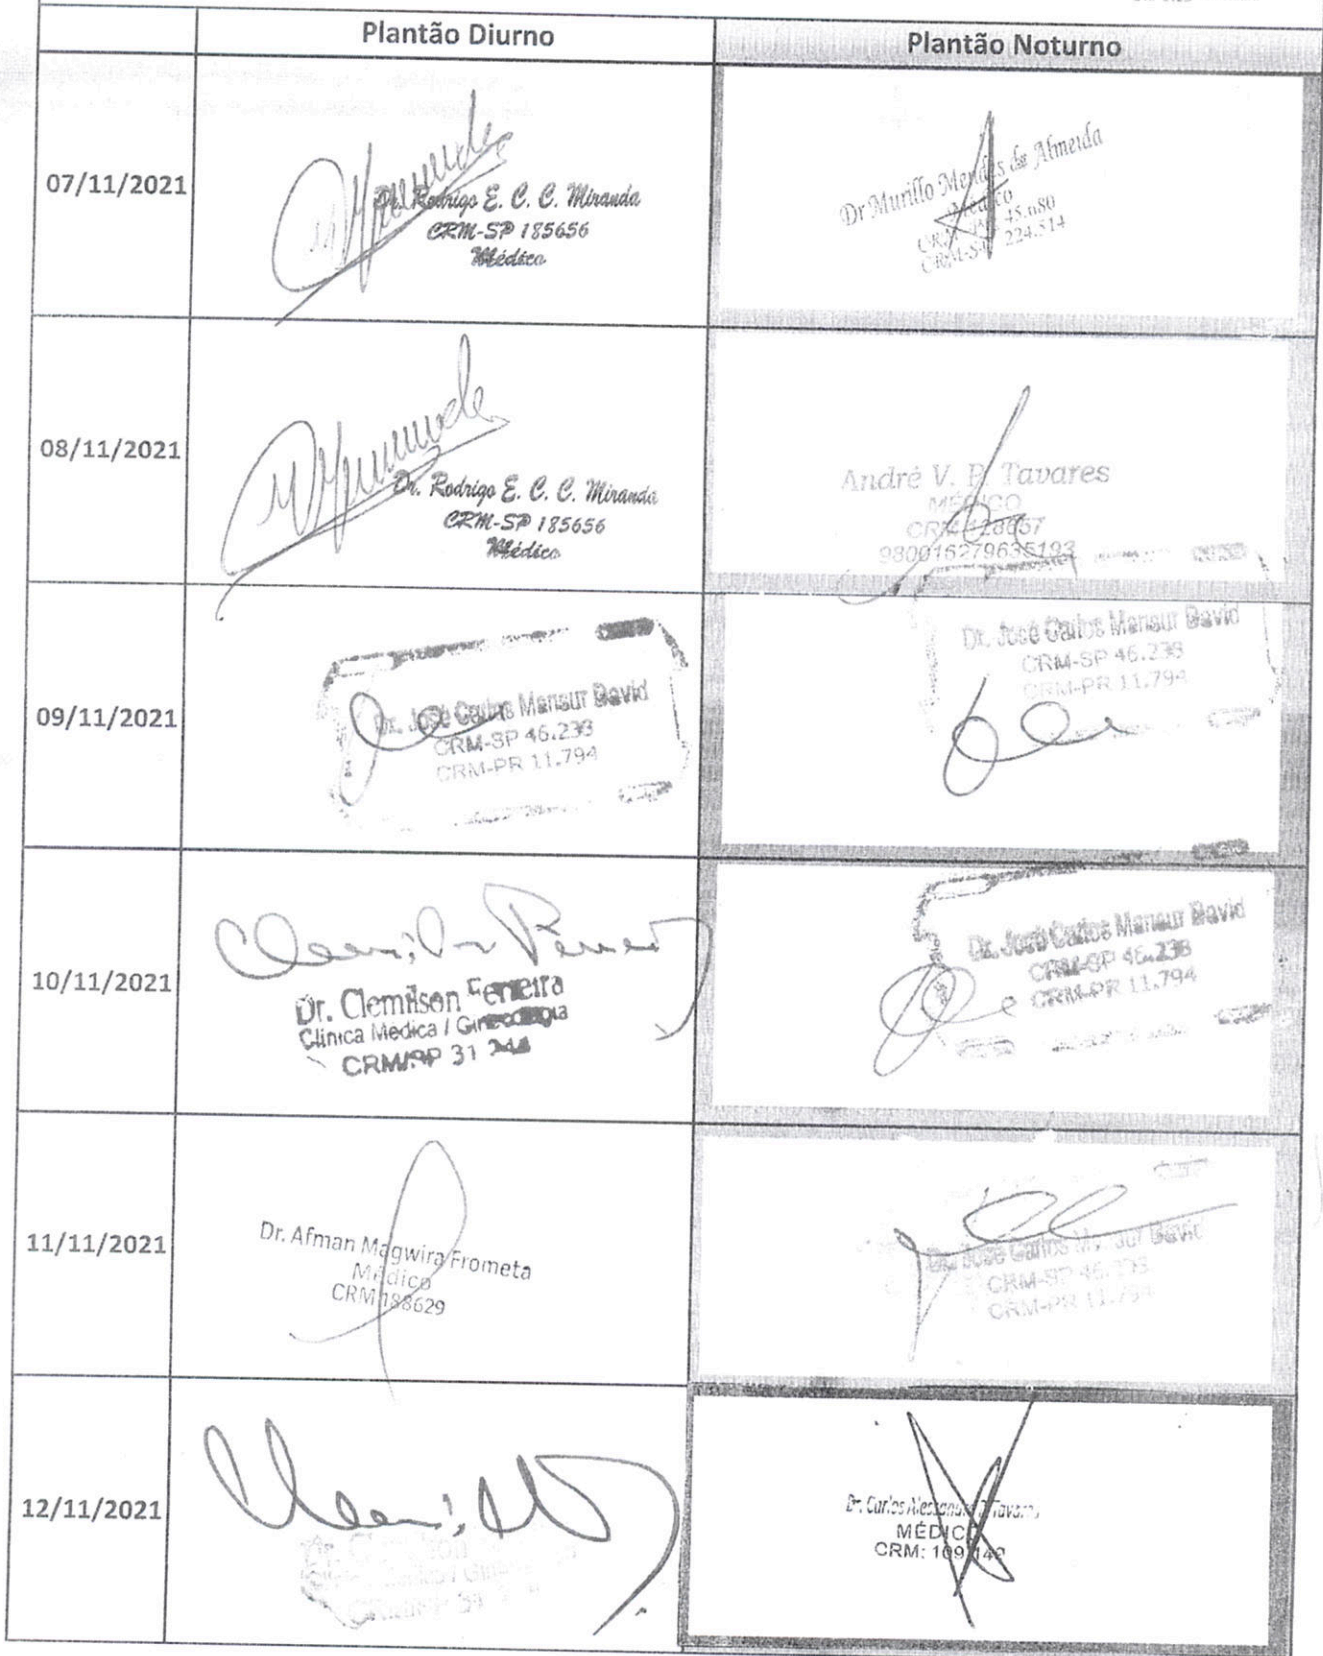 Plantão Diurno
Plantão Noturno
07/11/2021
Dr. Rodrigo E. C. C. Miranda
CRM-SP 185656
Médico
Dr Murillo Mendes de Almeida
Médico
45.080
CRM-SP 224.514
08/11/2021
Dr. Rodrigo E. C. C. Miranda
CRM-SP 185656
Médico
André V. P. Tavares
MÉDICO
CRM 128657
980016279635193
09/11/2021
Dr. José Carlos Mansur David
CRM-SP 46.238
CRM-PR 11.794
Dr. José Carlos Mansur David
CRM-SP 46.238
CRM-PR 11.794
10/11/2021
Dr. Clemilson Ferreira
Clínica Medica / Ginecologia
CRM/SP 31
Dr. José Carlos Mansur David
CRM-SP 46.238
CRM-PR 11.794
11/11/2021
Dr. Afman Magwira Frometa
Médico
CRM 188629
Dr. José Carlos Mansur David
CRM-SP 46.238
CRM-PR 11.794
12/11/2021
Dr. Clemilson
Dr. Carlos Alessandro Tavares
MÉDICO
CRM: 109142